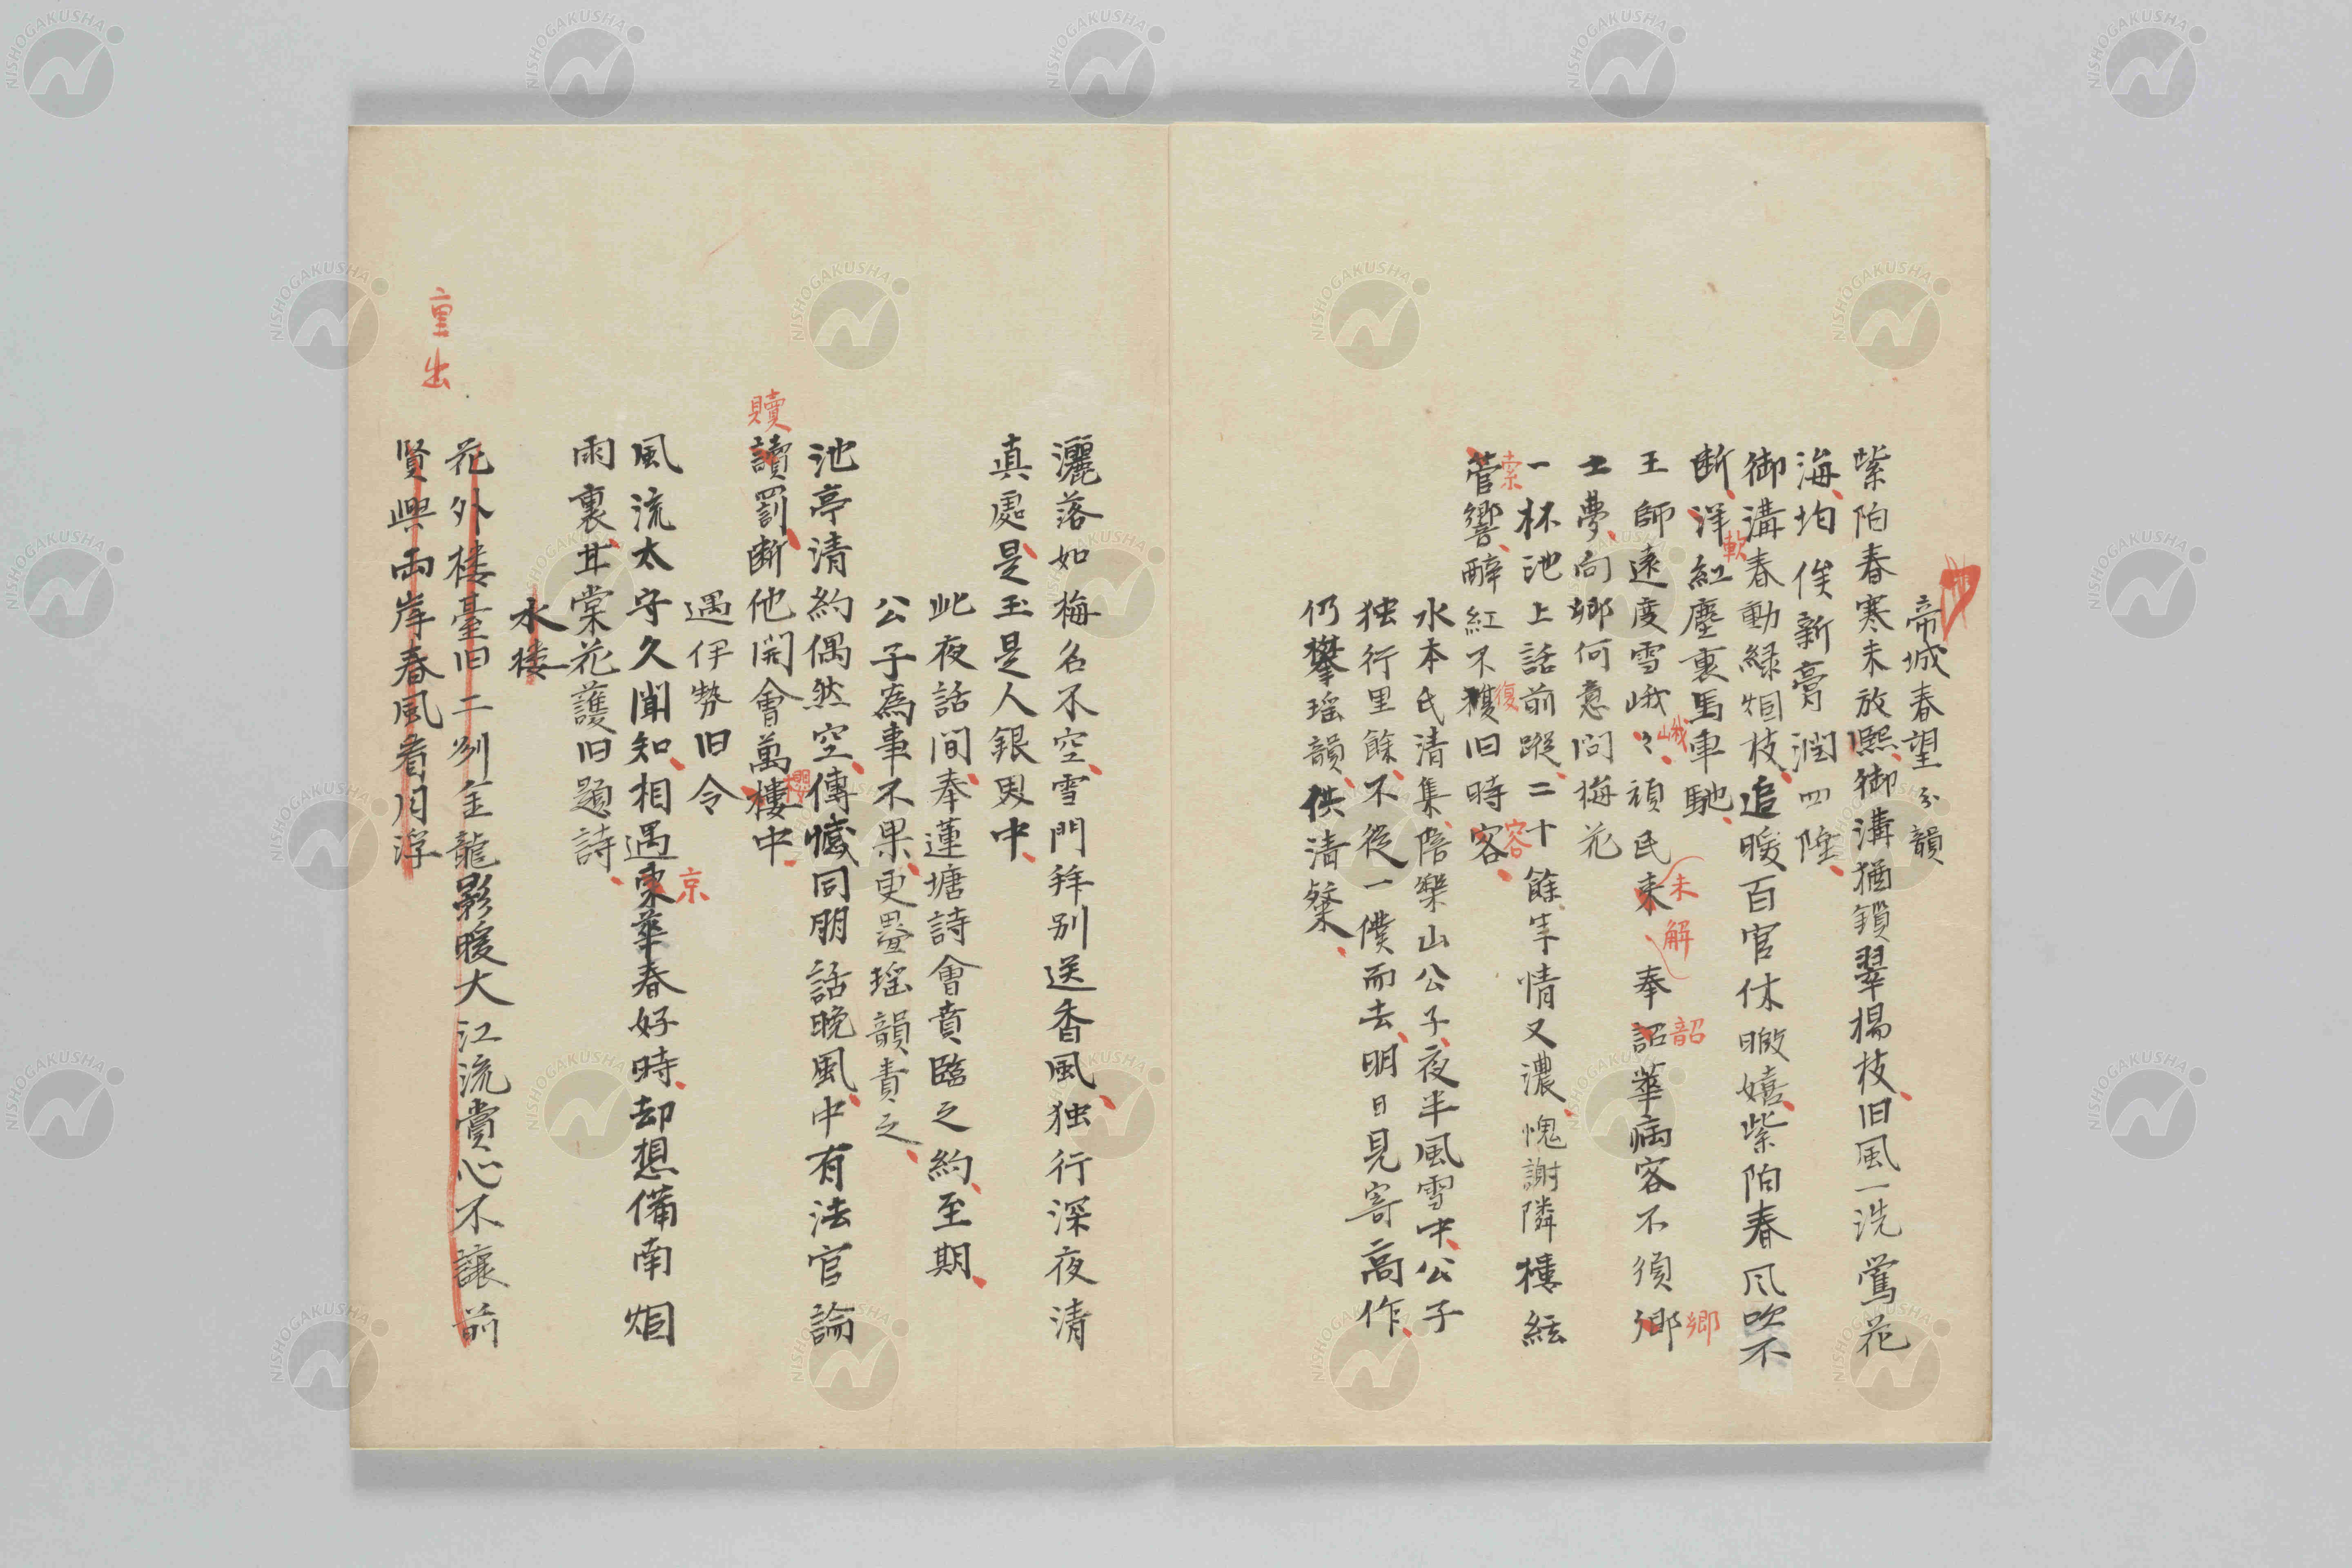 帝城春望分韻
紫陌春寒未放熙御溝猶鎖翠楊枝旧風一洗鶯花
海均俟新膏潤四陲
御溝春動緑烟枝追暖百官休暇嬉紫陌春風吹不
断洋紅塵裏馬車馳
軟
王師遠度雪峨々頑民未奉詔華病客不須郷
峨
未解
韶
郷
士夢向郷何意問梅花
一杯池上話前蹤二十餘年情又濃愧謝隣樓絃
索
管響酔紅不複旧時客
復
容
水本氏清集陪樂山公子夜半風雪中公子
独行里餘不従一僕而去明日見寄高作
仍攀瑶韻供清粲
灑落如梅名不空雪門拜別送香風独行深夜清
真處是玉是人銀界中
此夜話間奉蓮塘詩會賁臨之約至期
公子為事不果更畳瑶韻責之
池亭清約偶然空傳懺同朋話晩風中有法官論
贖
讀罰断他開會萬樓中
櫻
遇伊勢旧令
風流太守久聞知相遇東華春好時却想備南烟
京
雨裏甘棠花護旧題詩
水楼
重出
花外楼臺旧二列金龍影暖大江流賞心不譲前
賢興両岸春風看月浮
NISHOGAKUSHA